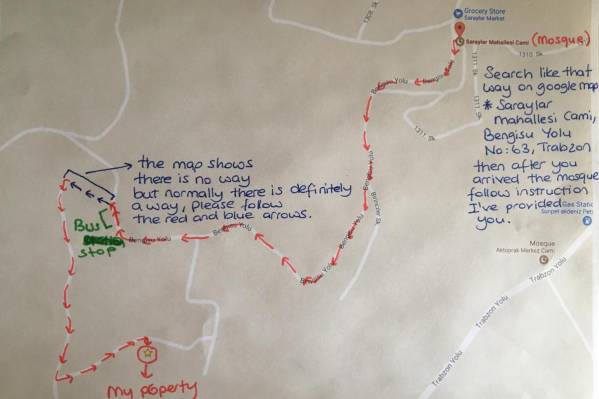 Grocery Store
Saraylar Market
1308. Sk
Saraylar Mahallesi Cami (mosque)
1310. Sk
1311. Sk
1311. Sk
Bengisu Yolu
Bengisu Yolu
Search like that
way on google map
* Saraylar
mahallesi Cami,
Bengisu Yolu
No:63, Trabzon
then after you
arrived the mosque
follow instruction
I've provided
you.
Gas Static
Sunpet akdeniz Pet
the map shows
there is no way
but normally there is definitely
a way, Please follow
the red and blue arrows.
Bus
stop
Bengisu Yolu
Bengisu Yolu
Bengisu Yolu
Bengisu Yolu
Bengisu Yolu
Birinciler Sk
Mosque
Aktoprak Merkez Cami
Trabzon Yolu
Trabzon Yolu
Trabzon Yolu
my poperty